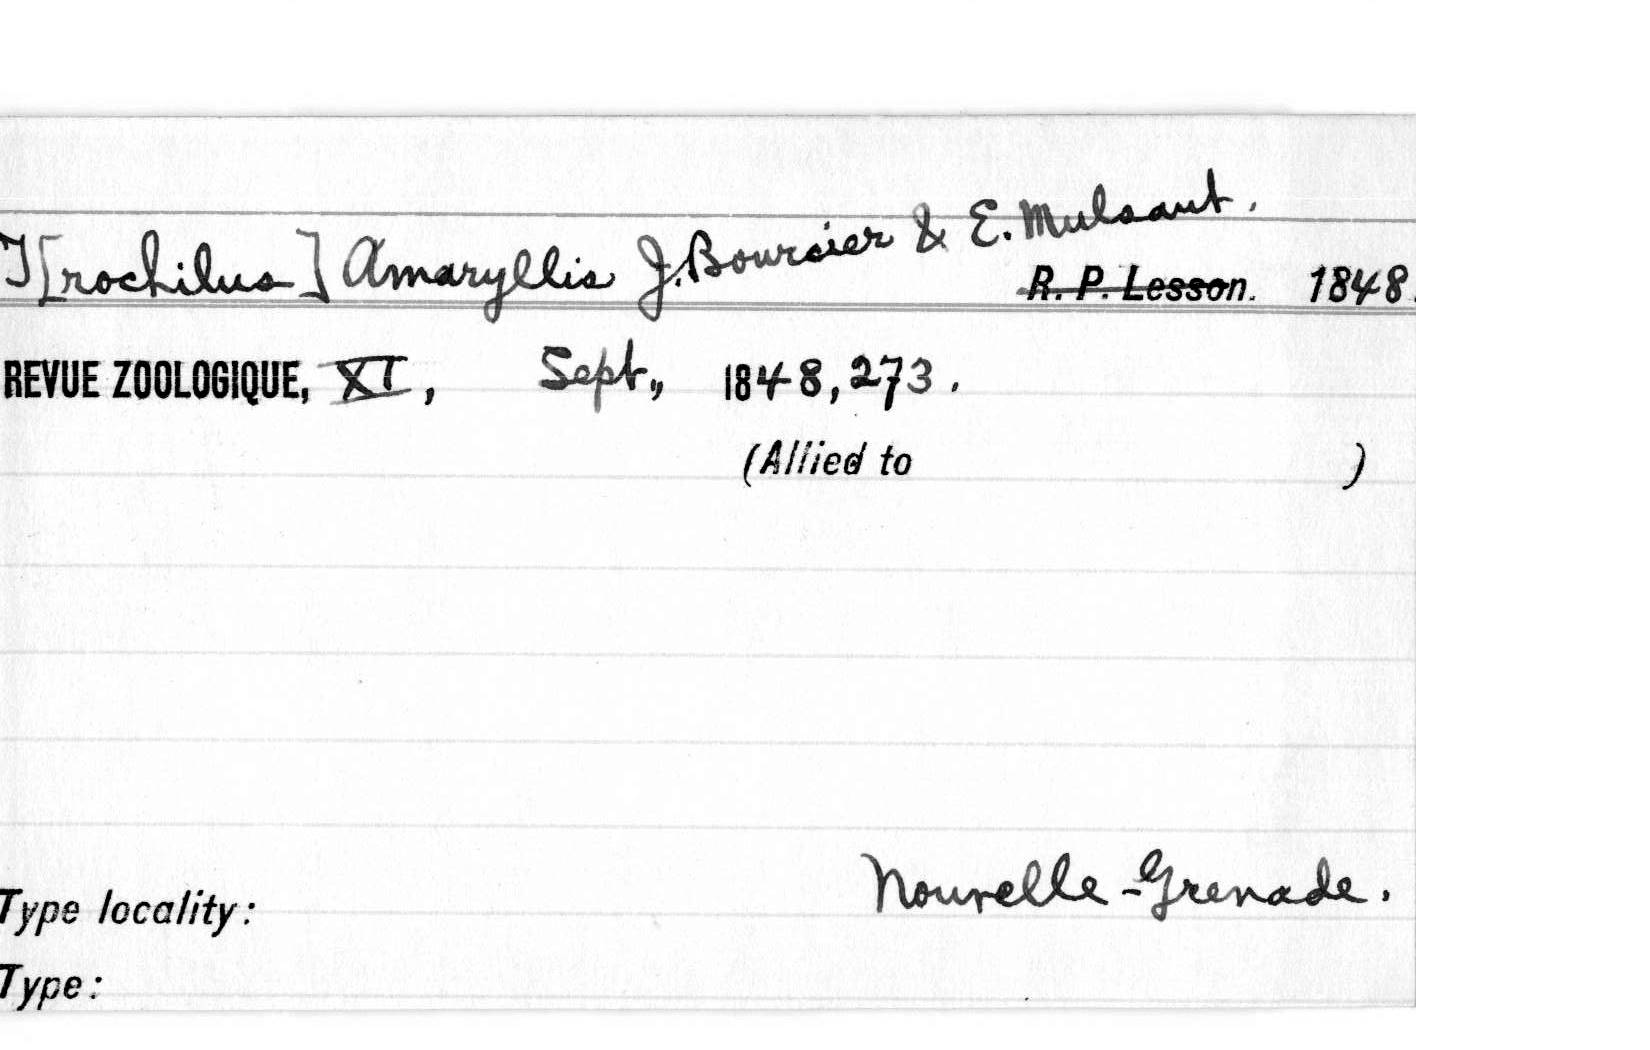 T[rochilus] Amaryllis J. Bourcier & E. Mulsant.
R. P. Lesson. 1848.
REVUE ZOOLOGIQUE, XI, Sept., 1848, 273.
(Allied to )
Type locality: Nouvelle-Grenade.
Type: